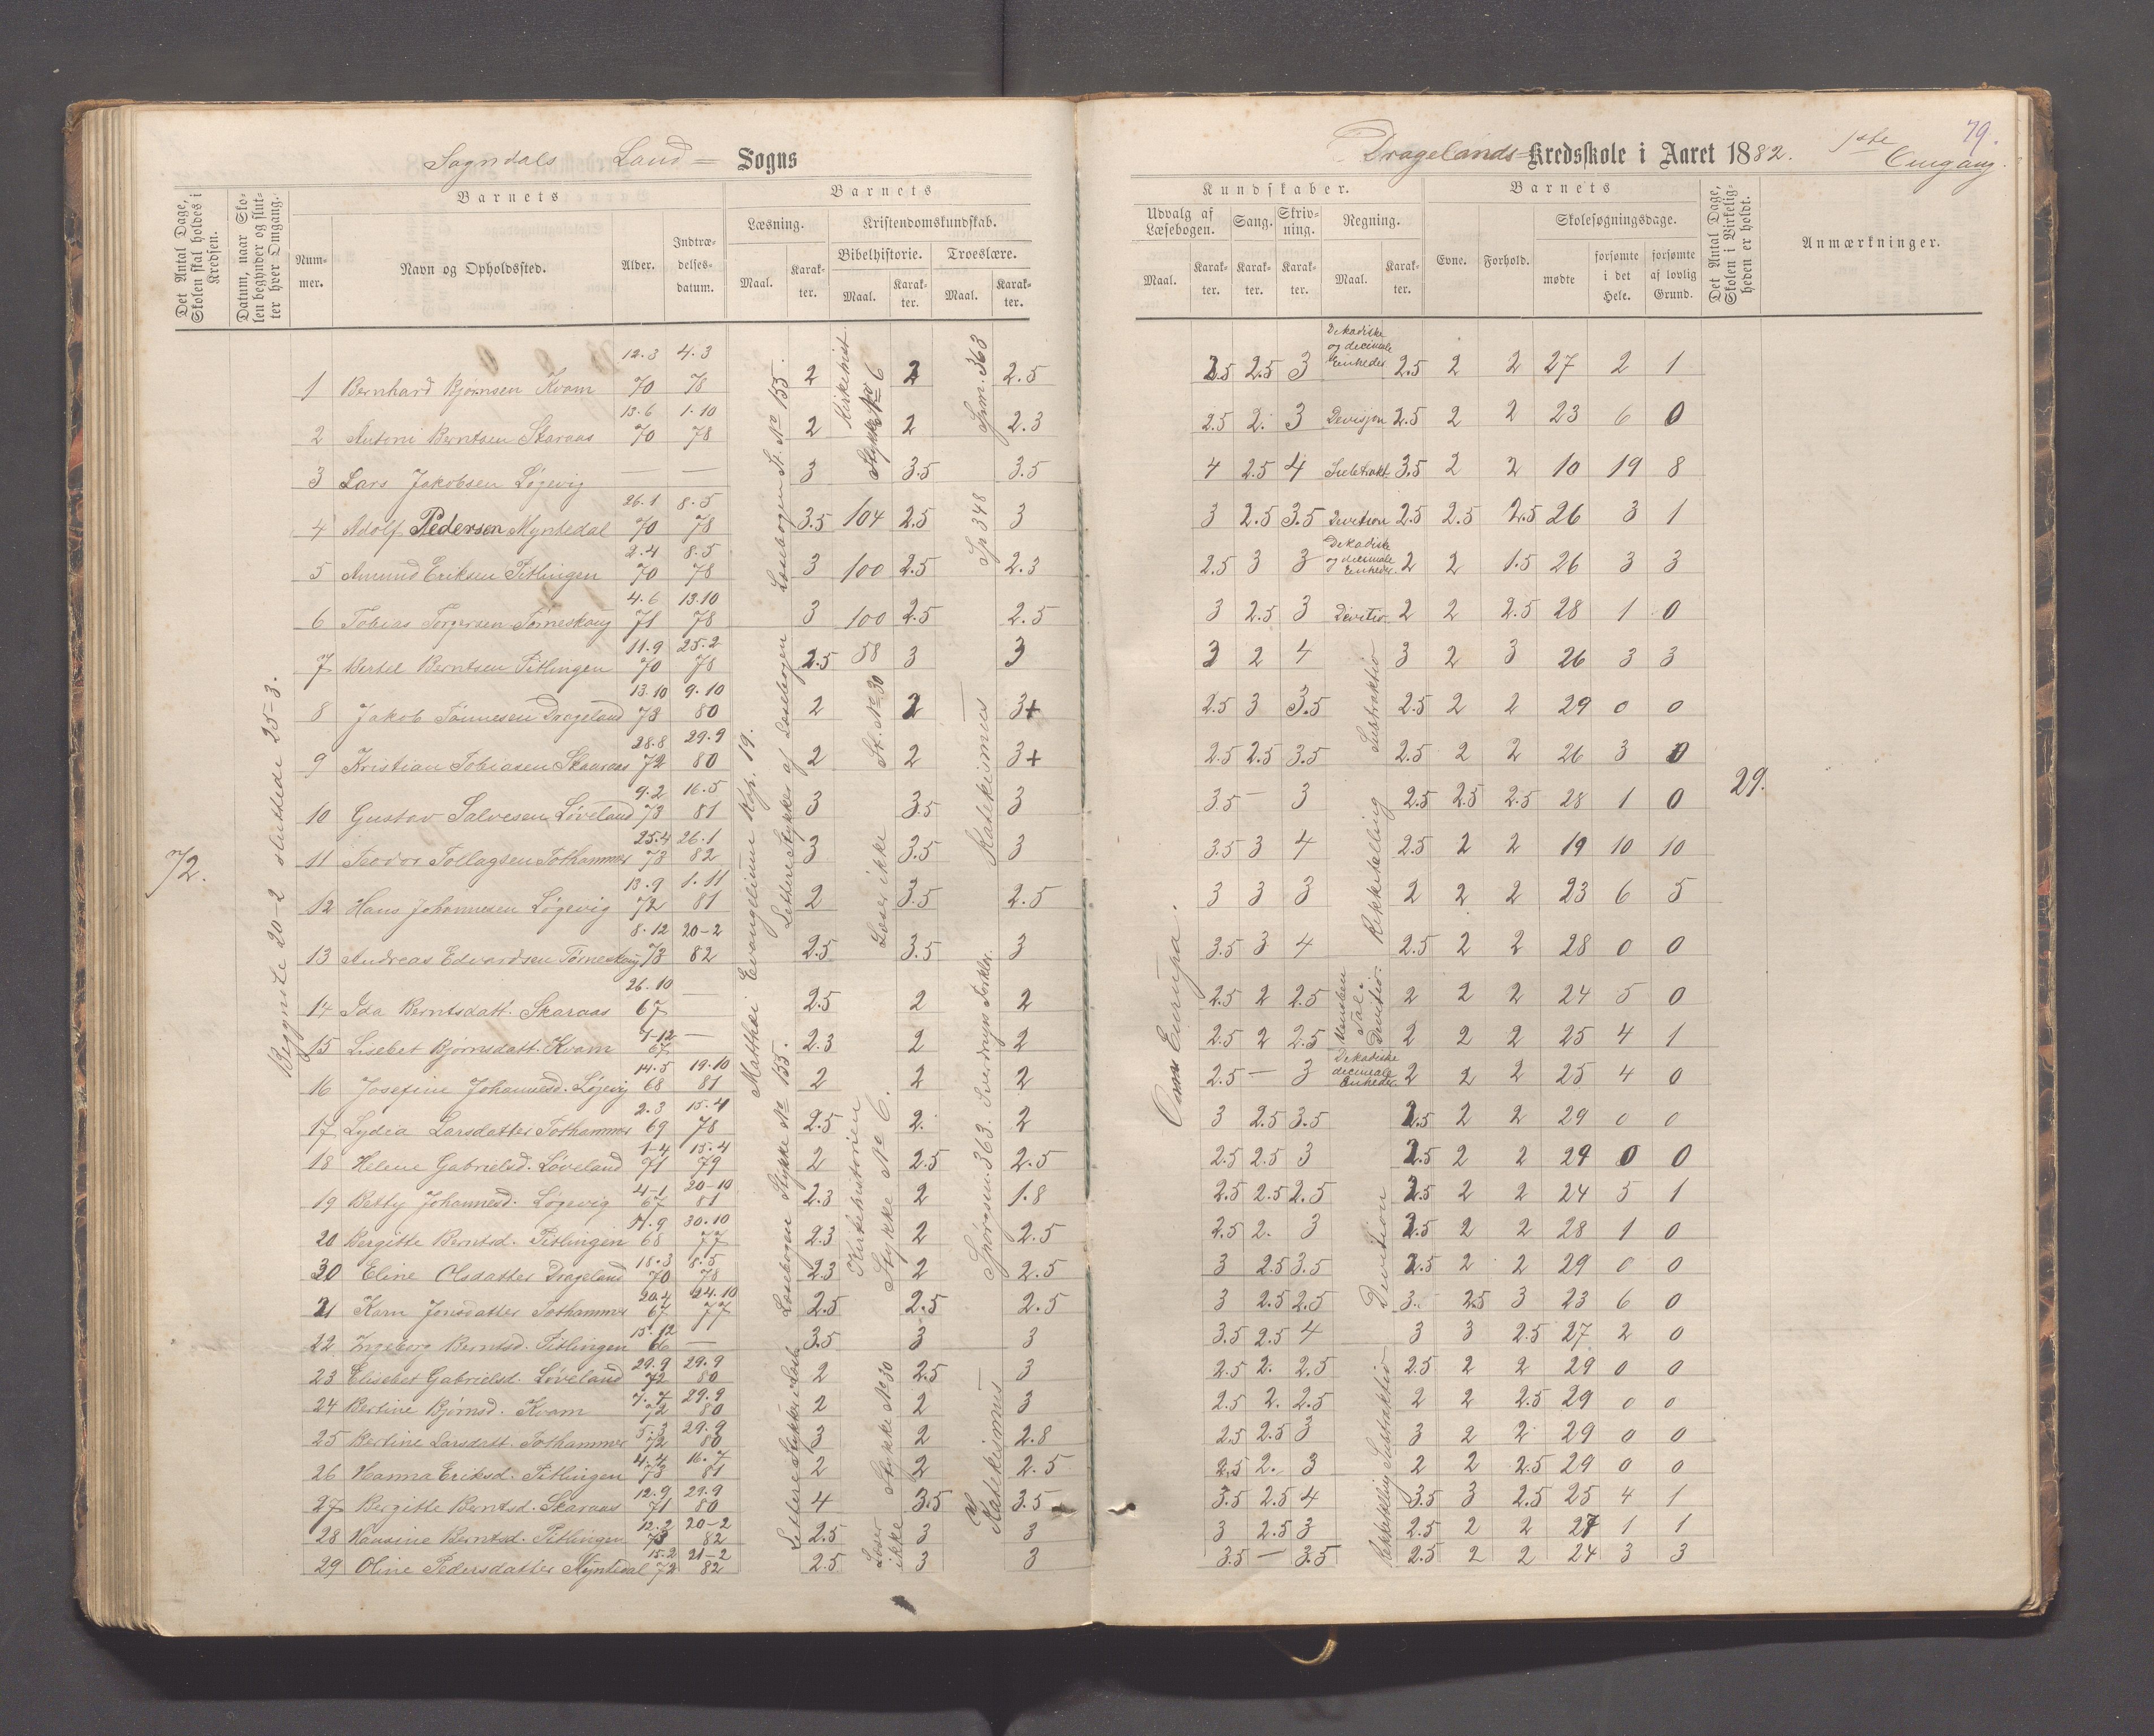 Sogndals Land= Sogns
Dragelands= Kredsskole i Aaret 1882. 1ste Omgang.
79.
Det Antal Dage, Skolen skal holdes i Kredsen.
Datum, naar Skolen begynder og slutter hver Omgang.
Barnets
Nummer.
Navn og Opholdssted.
Alder.
Indtrædelsesdatum.
Barnets
Læsning.
Maal.
Karakter.
Kristendomskundskab.
Bibelhistorie.
Maal.
Karakter.
Troeslære.
Maal.
Karakter.
Kundskaber.
Udvalg af Læsebogen.
Maal.
Karakter.
Sang.
Karakter.
Skrivning.
Karakter.
Regning.
Maal.
Karakter.
Barnets
Evne.
Forhold.
Skolesøgningsdage.
mødte
forsømte i det Hele.
forsømte af lovlig Grund.
Det Antal Dage, Skolen i Virkeligheden er holdt.
Anmærkninger.
72.
Begynte 20-2 sluttede 25-3.
Læsebogen St. No 155.
Lettere Stykker af Læsebogen
Matthæi Evangelium Kap. 19.
Læsebogen Stykke No 155.
Lettere Stykker i Læseb.
Kirkehist. Stykke No 6
St. No 30
Læser ikke
Kirkehistorien Stykke No 6.
Stykke No 30
Læser ikke
Spm. 363
Sp 348
Katekismus
Spørgsm. 363. Sverdrups Forklar.
Katekismus
Om Europa.
Substraktio
Rækketælling
Division
Substraktio
Rækketælling
29.
1 Bernhard Bjørnsen Kvam 12.3 70 4.3 78 2 2 2.5 2.5 2.5 3 Dekadiske og decimale Enheder 2.5 2 2 27 2 1
2 Antoni Berntsen Skaraas 13.6 70 1.10 78 2 2 2.3 2.5 2. 3 Devisjon 2.5 2 2 23 6 0
3 Lars Jakobsen Løgevig — — 3 3.5 3.5 4 2.5 4 Subtrakt. 3.5 2 2 10 19 8
4 Adolf Pedersen Myntedal 26.1 70 8.5 78 3.5 104 2.5 3 3 2.5 3.5 Devition 2.5 2.5 2.5 26 3 1
5 Amund Eriksen Pitlingen 2.4 70 8.5 78 3 100 2.5 2.3 2.5 3 3 Dekadiske og decimale Enheder. 2 2 1.5 26 3 3
6 Tobias Torgersen Tørneskoug 4.6 71 13.10 78 3 100 2.5 2.5 3 2.5 3 Devitio 2 2 2.5 28 1 0
7 Bertel Berntsen Pitlingen 11.9 70 25.2 78 2.5 58 3 3 3 2 4 3 2 3 26 3 3
8 Jakob Tønnesen Drageland 13.10 73 9.10 80 2 2 3+ 2.5 3 3.5 2.5 2 2 29 0 0
9 Kristian Tobiasen Skaaraas 28.8 72 29.9 80 2 2 3+ 2.5 2.5 3.5 2.5 2 2 26 3 0
10 Gustav Salvesen Løveland 9.2 73 16.5 81 3 3.5 3 3.5 — 3 2.5 2.5 2.5 28 1 0
11 Teodor Tollagsen Tothammer 25.4 73 26.1 82 3 3.5 3 3.5 3 4 2.5 2 2 19 10 10
12 Hans Johannesen Løgevig 13.9 72 1.11 81 2 3.5 2.5 3 3 3 2 2 2 23 6 5
13 Andreas Edvardsen Tørneskoug 8.12 73 20-2 82 2.5 3.5 3 3.5 3 4 2.5 2 2 28 0 0
14 Ida Berntsdatt. Skaraas 26.10 67 — 2.5 2 2 2.5 2 2.5 2 2 2 24 5 0
15 Lisebet Bjørnsdatt. Kvam 7-12 67 — 2.3 2 2 2.5 2 2.5 2 2 2 25 4 1
16 Josefine Johannesd. Løgevig 14.5 68 19.10 81 2 2 2 2.5 — 3 Dekadiske decimale Enheder 2 2 2 25 4 0
17 Lydia Larsdatter Tothammer 2.3 69 15.4 78 2.5 2. 2 3 2.5 3.5 2.5 2 2 29 0 0
18 Helene Gabrielsd. Løveland 1-4 71 15.4 79 2 2.5 2.5 2.5 2.5 3 2.5 2 2 29 0 0
19 Betty Johannesd. Løgevig 4-1 67 20-10 81 2.3 2 1.8 2.5 2.5 2.5 2.5 2 2 24 5 1
20 Bergitte Berntsd. Pitlingen 11.9 68 30.10 77 2.3 2 2.5 2.5 2. 3 2.5 2 2 28 1 0
30 Eline Olsdatter Drageland 18.3 70 8.5 78 2.3 2 2.5 3 2.5 3.5 2.5 2 2 29 0 0
21 Karn Jonsdatter Tothammer 20.4 67 24.10 77 2.5 2.5 2.5 3 2.5 2.5 3. 2.5 3 23 6 0
22 Ingeborg Berntsd. Pitlingen 15.12 66 — 3.5 3 3 3.5 2.5 4 3 3 2.5 27 2 0
23 Elisebet Gabrielsd. Løveland 29.9 72 29.9 80 2 2.5 3 2.5 2. 2.5 2.5 2 2 29 0 0
24 Bertine Bjørnsd. Kvam 7.7 72 29.9 80 2 2 3 2.5 2. 2.5 2 2 2.5 29 0 0
25 Bertine Larsdatt. Tothammer 5.3 72 29.9 80 3 2 2.8 2.5 2.5 3 3 2 2 29 0 0
26 Hanna Eriksd. Pitlingen 4.4 73 16.7 81 2 2 2.5 2.5 2. 3 2 2 2.5 29 0 0
27 Bergitte Berntsd. Skaraas 12.9 71 29.9 80 4 3.5 3.5 3.5 2.5 4 3.5 3 2.5 25 4 1
28 Hansine Berntsd. Pitlingen 12.2 73 20-2 82 2.5 3 3 3 2.5 3 2.5 2 2 27 1 1
29 Oline Pedersdatter Myntedal 15.2 72 21-2 82 2.5 3 3 3.5 — 3.5 2.5 2 2 24 3 3